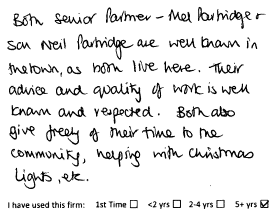 Both Senior Partner - Mel Partridge +
Son Neil Partridge are well known in
the town, as both live here. Their
advice and quality of work is well
known and respected. Both also
give freely of their time to the
community, helping with Christmas
lights, etc.
I have used this firm: 1st Time ☐ <2 yrs ☐ 2-4 yrs ☐ 5+ yrs ☑